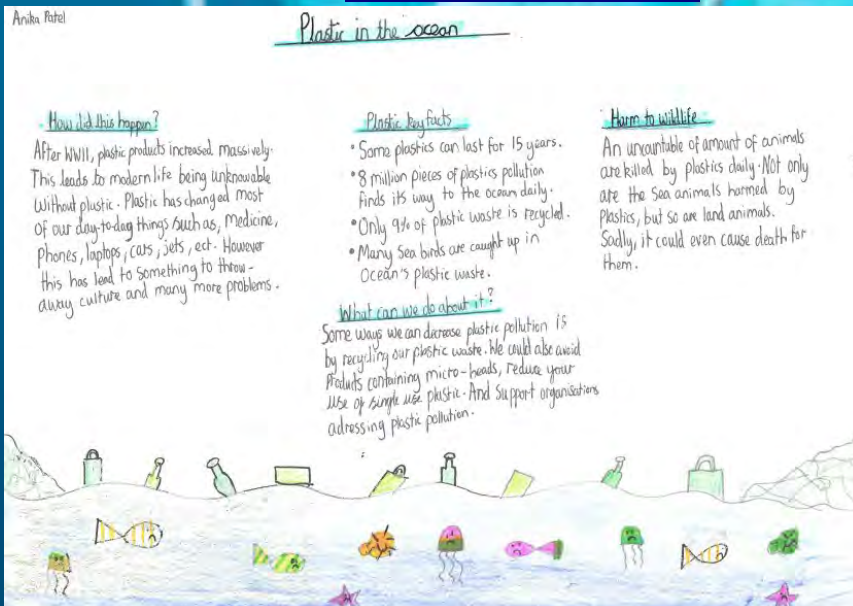 Anika Patel
Plastic in the ocean
How did this happen?
After WWII, plastic products increased massively.
This leads to modern life being unknowable
without plastic. Plastic has changed most
of our day-to-day things such as, medicine,
Phones, laptops, cars, jets, ect. However
this has lead to something to throw-
away culture and many more problems.
Plastic key facts
• Some plastics can last for 15 years.
• 8 million pieces of plastics pollution
finds its way to the ocean daily.
• Only 9% of plastic waste is recycled.
• Many Sea birds are caught up in
Ocean's plastic waste.
What can we do about it?
Some ways we can decrease plastic pollution is
by recycling our plastic waste. We could also avoid
Products containing micro-beads, reduce your
use of single use plastic. And support organisations
adressing plastic pollution.
Harm to wildlife
An uncountable of amount of animals
are killed by plastics daily. Not only
are the Sea animals harmed by
Plastics, but so are land animals.
Sadly, it could even cause death for
them.